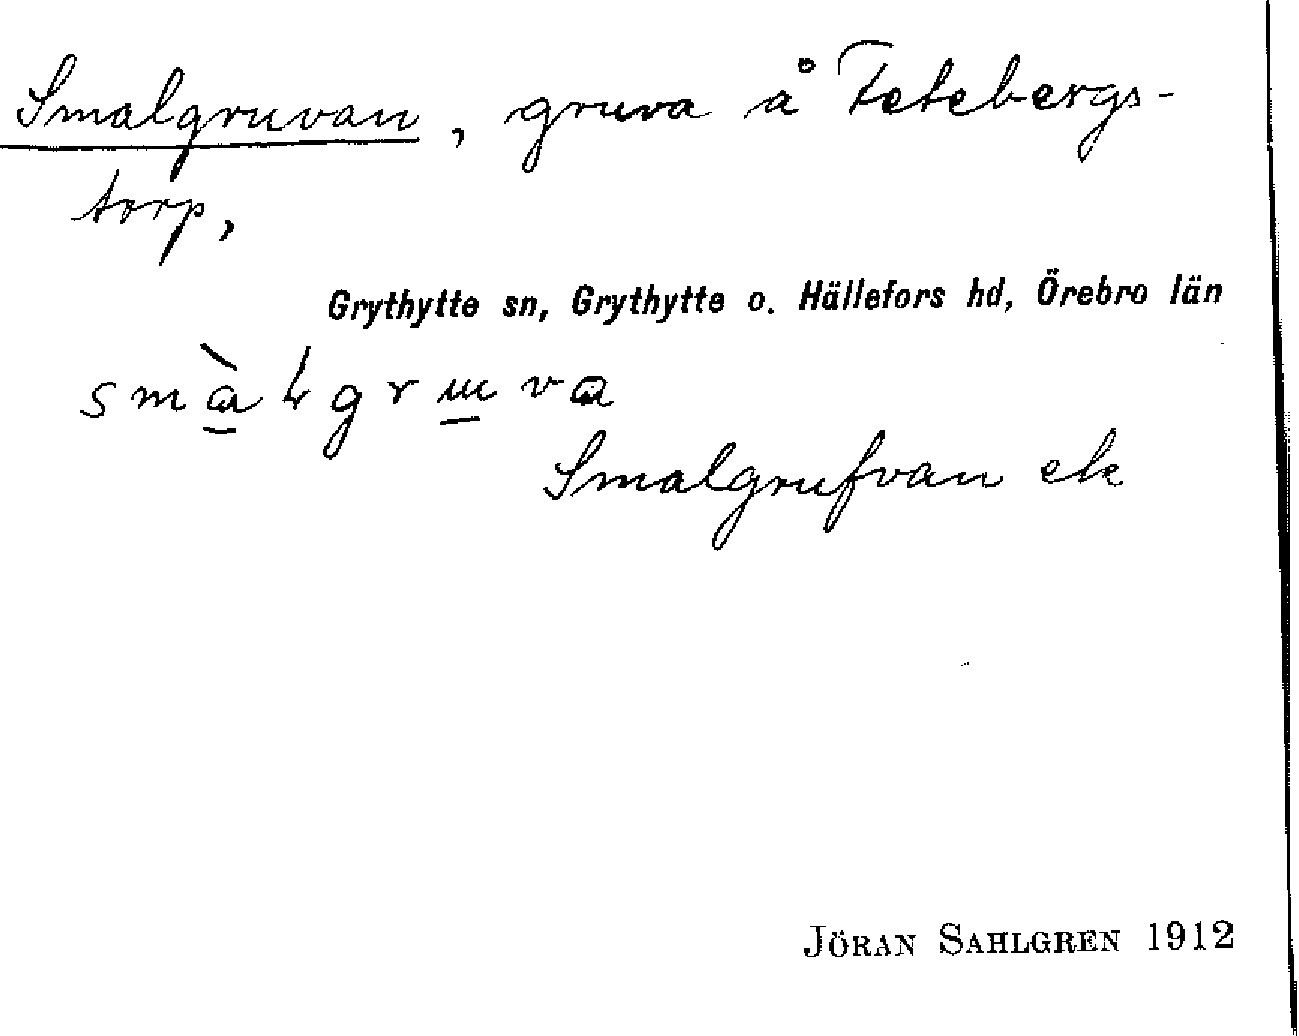 Smalgruvan, gruva å Fetebergs-
torp,
Grythytte sn, Grythytte o. Hällefors hd, Örebro län
Smalgrufvan ek
JÖRAN SAHLGREN 1912